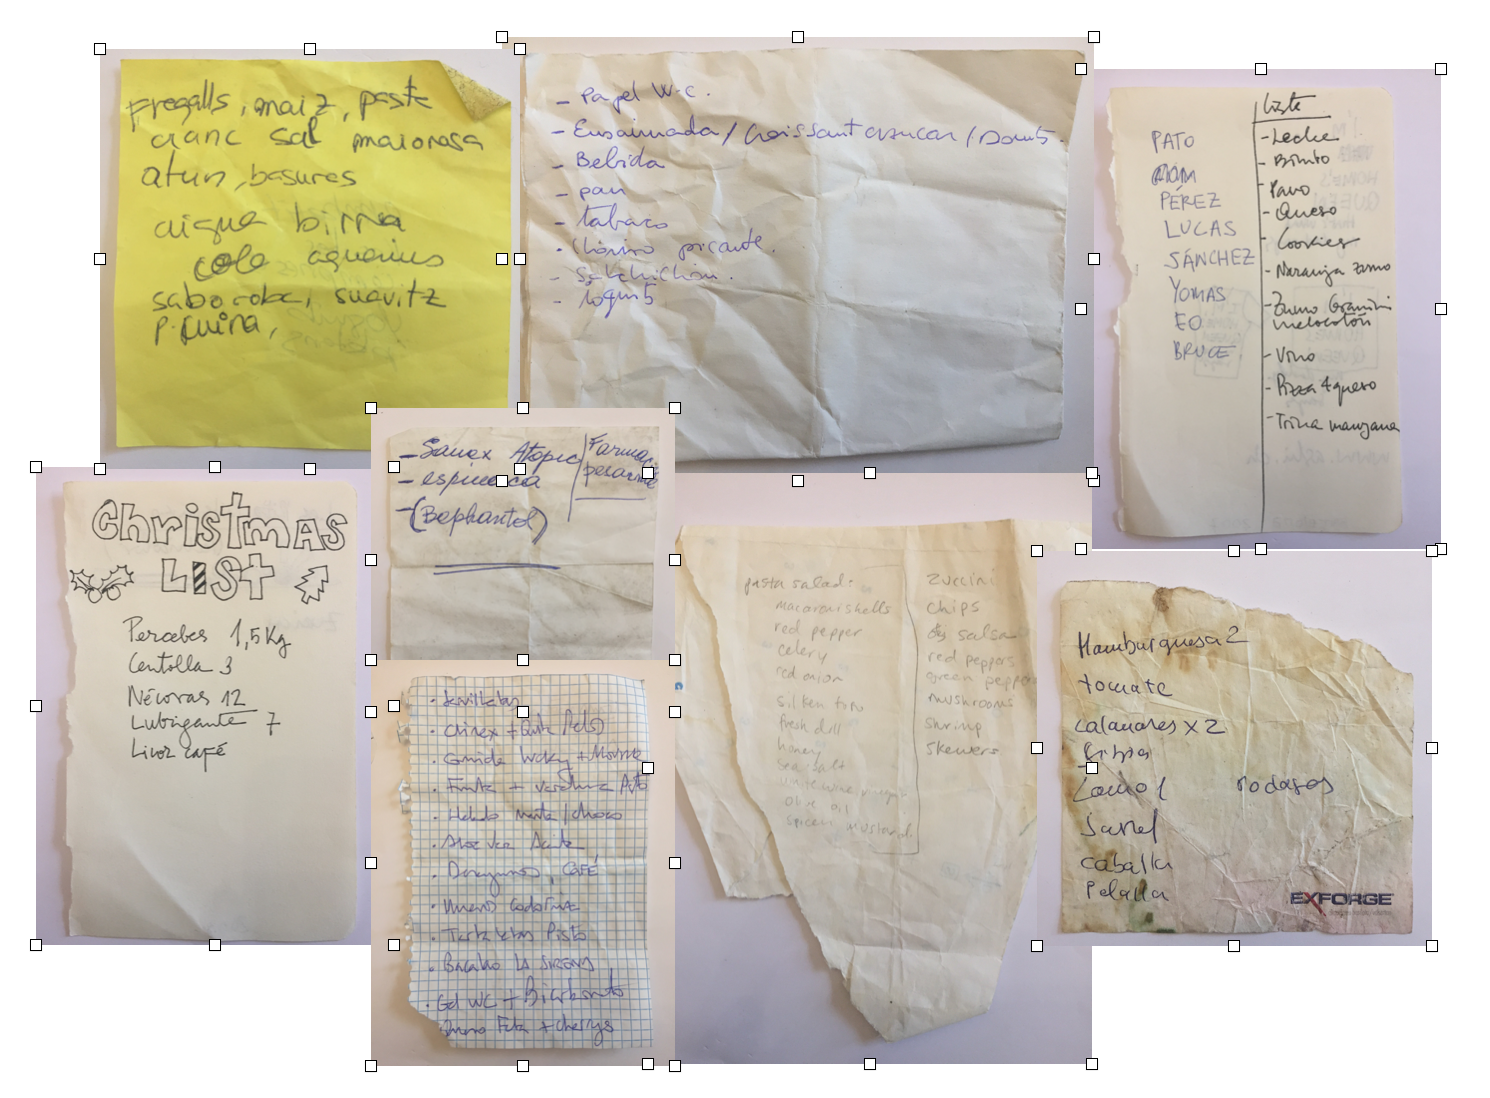 fregalls, maiz, paste
cranc sal maionesa
atun, basures
aigua birra
cola aquarius
sabo roba, suavitz
P. cuina,
- Papel W.C.
- Ensaimada / Croissant azucar / Donuts
- Bebida
- pan
- tabaco
• Chorizo picante.
- Salchichón.
- Iogurts
PATO
PÉREZ
LUCAS
SÁNCHEZ
YOMAS
EO
BRUCE
Liste
- Leche
- Bonito
- Pavo
- Queso
- Cookies
- Naranja zumo
- Zumo Granini
melocotón
- Vino
- Pizza 4 queso
- Trina manzana
Christmas
List
Percebes 1,5 Kg
Centolla 3
Nécoras 12
Lubrigante 7
Licor café
- Sanex Atopic
- espinaca
- (Bephantol)
Farmacia
• Servilletas
• Clinex + Quita Pelos
• Comida Wcky + Mousse
• Fruta + verdura
• Helado menta / choco
• Aloe Vera
• Desayunos, CAFÉ
• Huevos Codorniz
• Tartaletas Pisto
• Bacalao LA SIRENA
• Gel WC + Bicarbonato
Queso Feta + cherrys
pasta salad:
macaroni shells
red pepper
celery
red onion
silken tofu
fresh dill
honey
sea salt
white wine vinegar
olive oil
spicen mustard
zuccini
chips
salsa
red peppers
green peppers
mushrooms
shrimp
skewers
Hamburguesa 2
tomate
calamares x 2
rodasos
caballa
Pelalla
EXFORGE